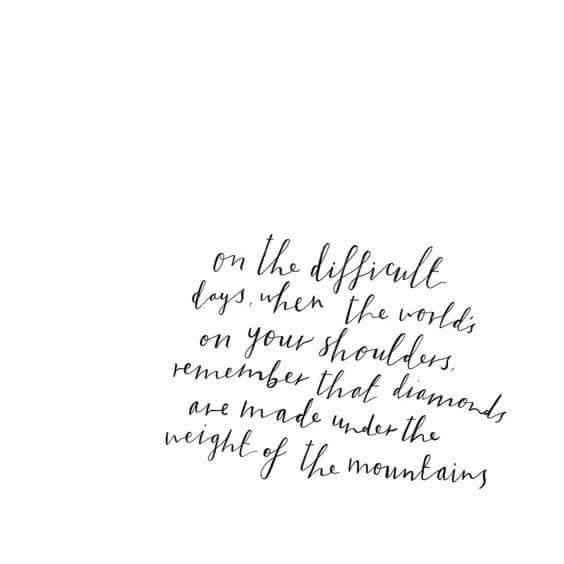 on the difficult
days, when the world's
on your shoulders,
remember that diamonds
are made under the
weight of the mountains